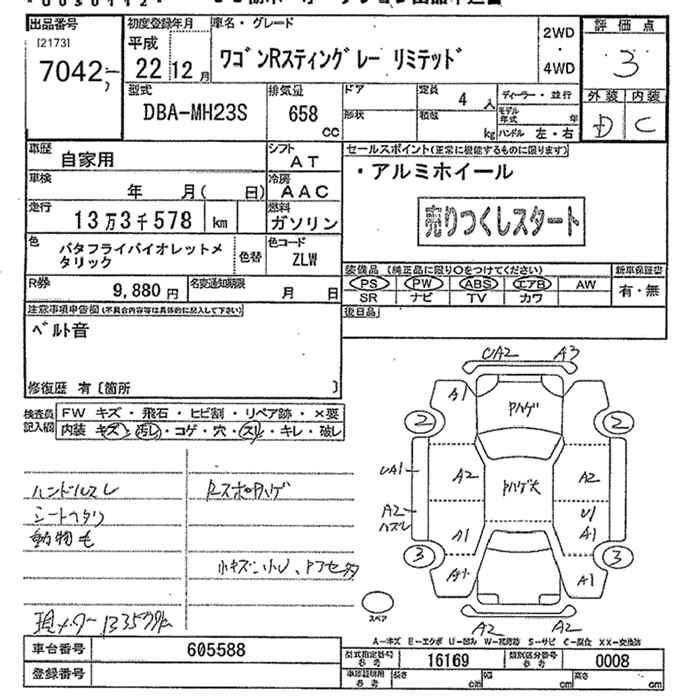 出品番号
[2173]
7042
初度登録年月
平成
22 12月
車名・グレード
ワゴンRスティングレー リミテッド
2WD
・
4WD
評価点
3
外装 内装
D C
型式
DBA-MH23S
排気量
658
cc
ドア
形状
定員
4人
積載
kg
ディーラー・並行
モデル年式 年
ハンドル 左・右
車歴
自家用
シフト
AT
車検
年 月( 日)
冷房
AAC
走行
13万3千578 km
燃料
ガソリン
色
バタフライバイオレットメタリック
色替
色コード
ZLW
R券
9,880円
名変通知期限
月 日
セールスポイント(正常に機能するものに限ります)
・アルミホイール
売りつくしスタート
装備品 (純正品に限り○をつけてください)
PS PW ABS エアB AW
SR ナビ TV カワ
新車保証書
有・無
後日品
注意事項申告欄(不具合内容等は具体的に記入して下さい)
ベルト音
修復歴 有〔箇所 〕
検査員記入欄
FW キズ・飛石・ヒビ割・リペア跡・×要
内装 キズ・汚レ・コゲ・穴・スレ・キレ・破レ
ハンドルスレ
シートヘタリ
動物毛
現メーター
UA2 A3
A1
Pハゲ
2 2
UA1
A2
Pハゲ大
A2
A2
ハズレ
A1
U1
A1
3 3
A1
スペア
A2 A2
A−キズ E−エクボ U−凹み W−補修跡 S−サビ C−腐食 XX−交換済
車台番号
605588
登録番号
型式指定番号
参考
16169
類別区分番号
参考
0008
車庫証明用
参考
長さ cm
幅 cm
高さ cm